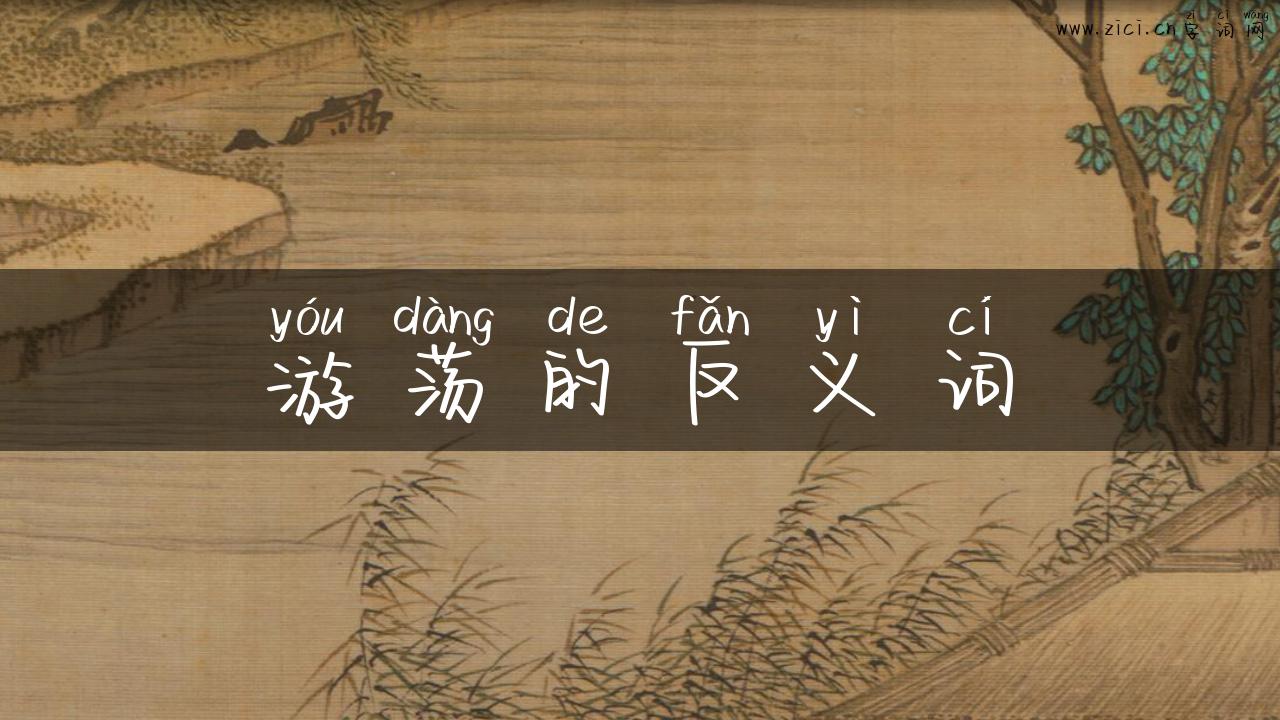 zì cí wǎng
www.zici.cn 字词网
yóu dàng de fǎn yì cí
游荡的反义词